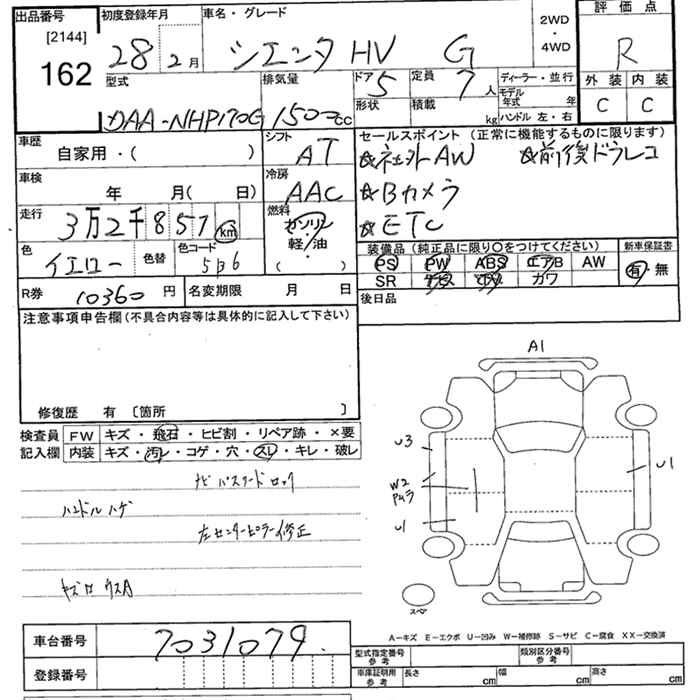 出品番号 [2144] 162
初度登録年月 28年 2月
車名・グレード シエンタ HV G
2WD・4WD
評価点 R
型式 DAA-NHP170G
排気量 1500cc
ドア 5
形状
定員 7人
積載 kg
ディーラー・並行
モデル年式 年
ハンドル 左・右
外装 内装
C C
車歴 自家用・( )
シフト AT
車検 年 月( 日)
冷房 AAC
走行 3万2千857km
燃料 ガソリン・軽油
( )
色 イエロー 色替
色コード 5B6
R券 10360円
名変期限 月 日
セールスポイント (正常に機能するものに限ります)
☆社外AW ☆前後ドラレコ
☆Bカメラ
☆ETC
装備品 (純正品に限り○をつけてください)
新車保証書
PS PW ABS エアB AW
SR ナビ TV カワ
有・無
後日品
注意事項申告欄 (不具合内容等は具体的に記入して下さい)
修復歴 有 [箇所 ]
検査員記入欄
FW キズ・飛石・ヒビ割・リペア跡・×要
内装 キズ・汚レ・コゲ・穴・スレ・キレ・破レ
ナビパスワードロック
ハンドルハゲ
左センターピラー修正
A1
U3
W2
U1
U1
スペア
A−キズ E−エクボ U−凹み W−補修跡 S−サビ C−腐食 XX−交換済
車台番号 7031079
登録番号
型式指定番号 参考
類別区分番号 参考
車庫証明用 参考 長さ cm 幅 cm 高さ cm